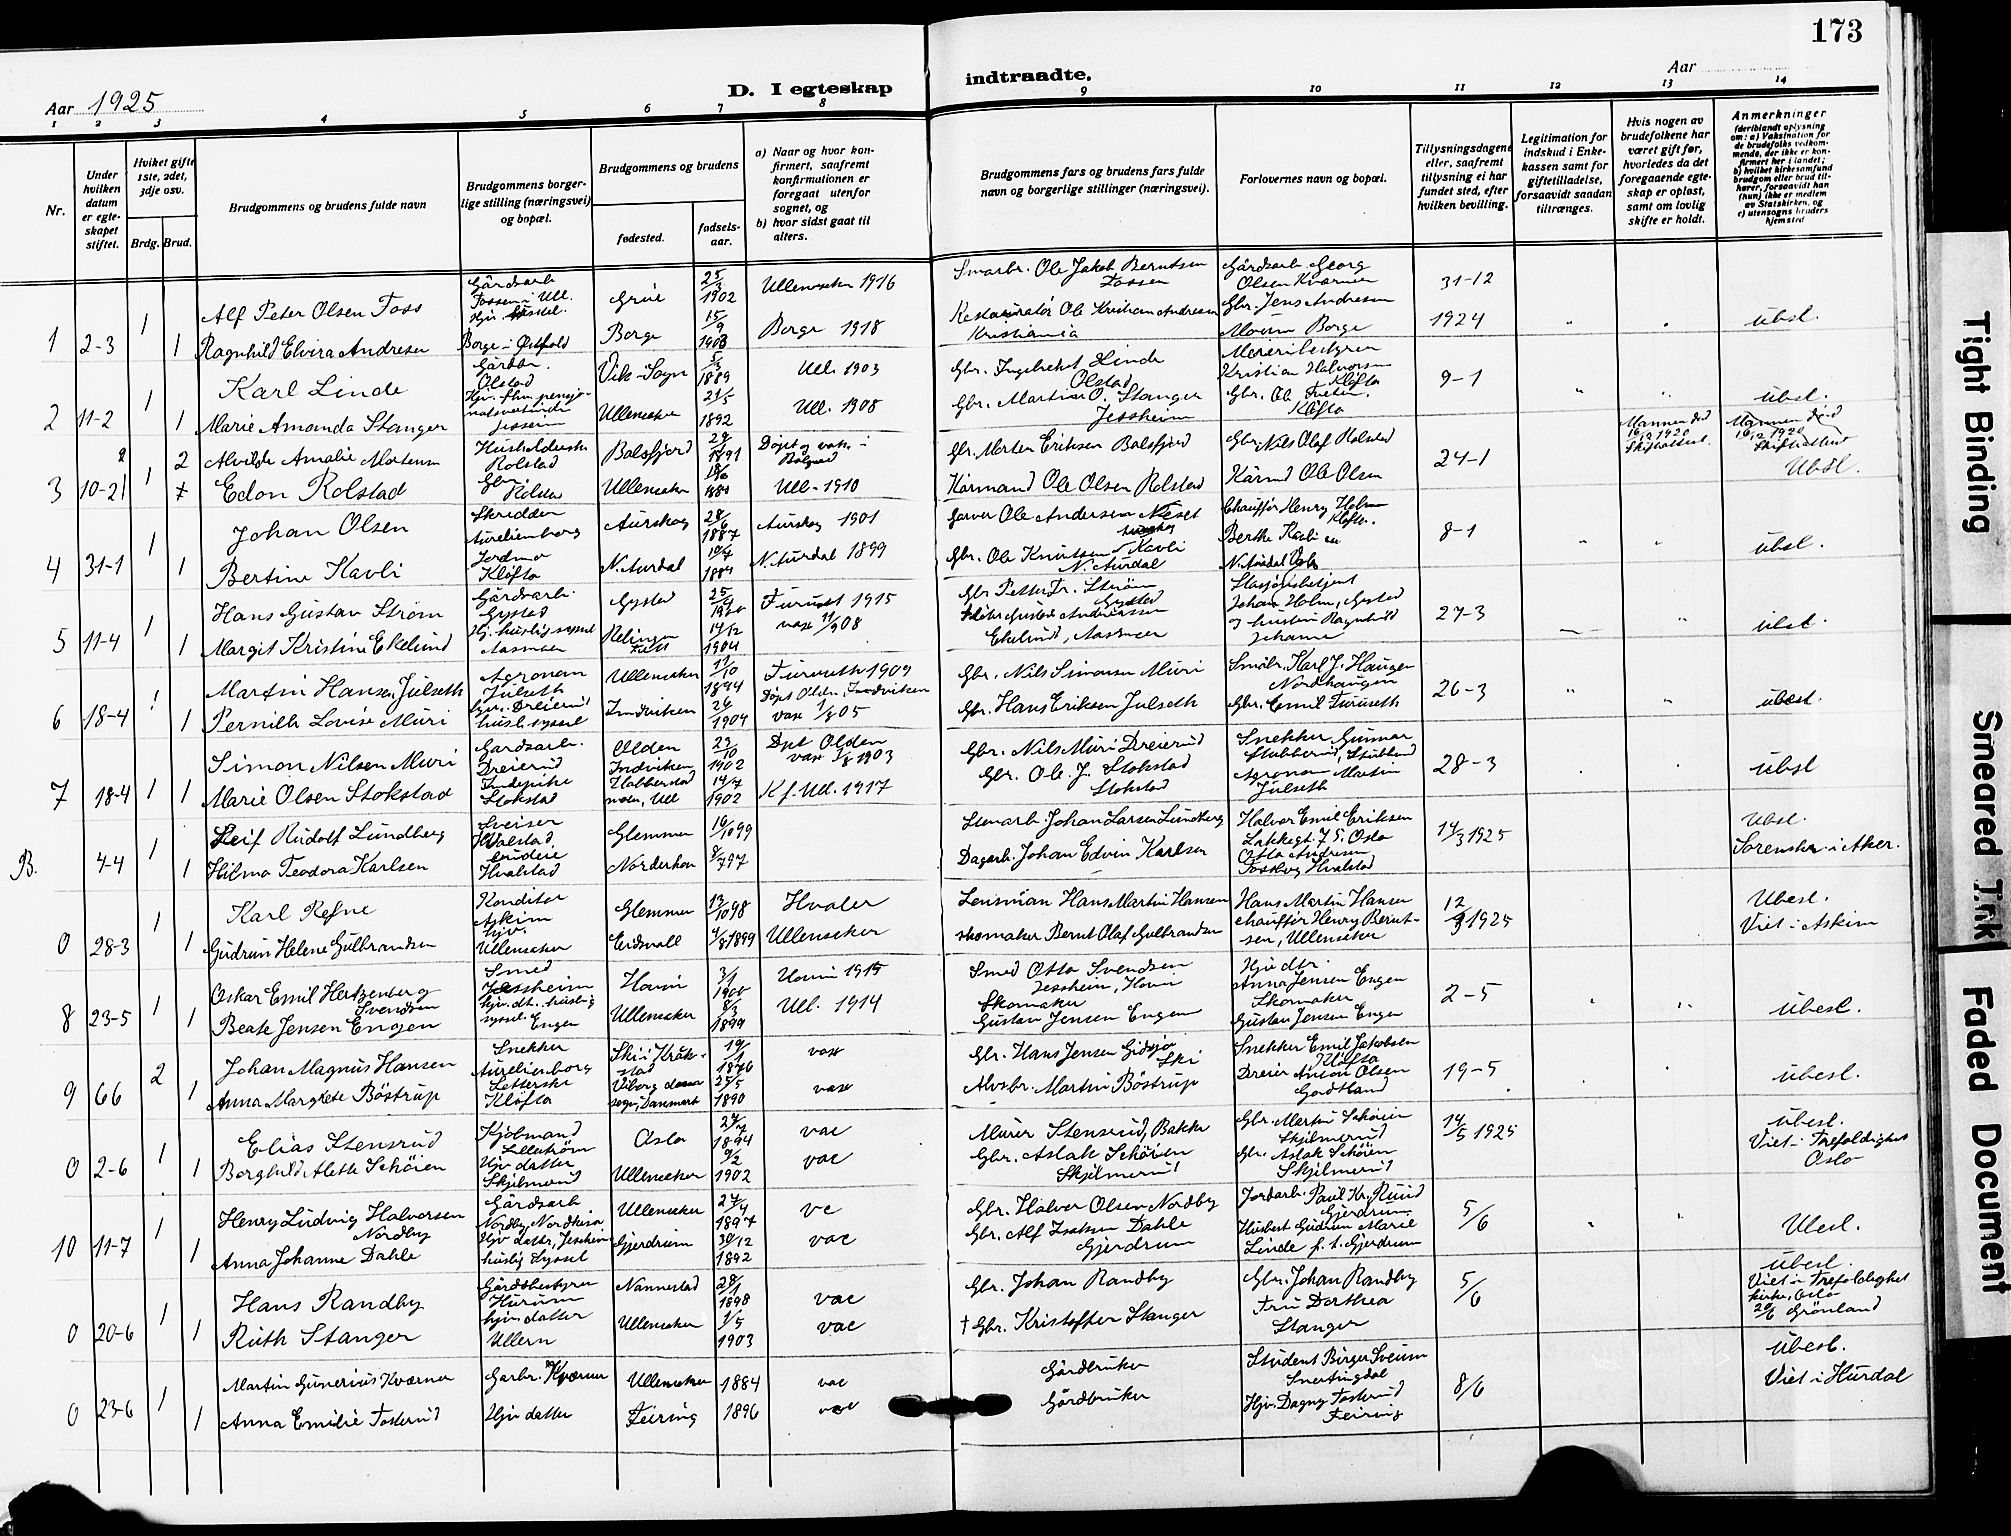 173
Aar 1925
D. I egteskap
indtraadte.
Aar
1 2 3 4 5 6 7 8 9 10 11 12 13 14
Nr.
Under hvilken datum er egteskapet stiftet.
Hviket gifte 1ste, 2det, 3dje osv.
Brdg. Brud.
Brudgommens og brudens fulde navn
Brudgommens borgerlige stilling (næringsvei) og bopæl.
Brudgommens og brudens
fødested.
fødselsaar.
a) Naar og hvor konfirmert, saafremt konfirmationen er foregaat utenfor sognet, og
b) hvor sidst gaat til alters.
Brudgommens fars og brudens fars fulde navn og borgerlige stillinger (næringsvei).
Forlovernes navn og bopæl.
Tillysningsdagene eller, saafremt tillysning ei har fundet sted, efter hvilken bevilling.
Legitimation for indskud i Enkekassen samt for giftetilladelse, forsaavidt saadan tiltrænges.
Hvis nogen av brudefolkene har været gift før, hvorledes da det foregaaende egteskap er opløst, samt om lovlig skifte er holdt.
Anmerkninger
(deriblandt oplysning om: a) Vaksination for de brudefolks vedkommende, der ikke er konfirmert her i landet; b) hvilket kirkesamfund brudgom eller brud tilhører, forsaavidt han (hun) ikke er medlem av Statskirken, og c) utensogns bruders hjemsted
1 2-3 1 1
Alf Peter Olsen Foss
Gårdsarb. Fossen i Ull.
Grue 25/3 1902
Ullensaker 1916
Smarbr. Ole Jakob Berntsen Fossen
Gårdsarb Georg Olsen Kværnen
31-12
Ragnhild Elvira Andresen
Borge i Østfold
Borge 15/9 1903
Borge 1918
Restauratør Ole Kristian Andresen Kristiania
Gbr. Jens Andresen Moum Borge
1924
ubsl.
2 11-2 1 1
Karl Linde
Gårdbr. Olstad
Vik-Sogn 5/3 1889
Ull. 1903
Gbr. Ingebret Linde Olstad
Meieribestyrer Kristian Halvorsen Kløfta
9-1
Marie Amanda Stanger
Jessheim
Ullensaker 21/5 1892
Ull. 1908
Gbr. Martin O. Stanger Jessheim
Kløfta
ubesl.
3 10-2 1 2
Alvilde Amalie Mortensen
Rolstad
Balsfjord 1891
Gbr. Morten Eriksen Balsfjord
Gbr. Nils Olaf Rolstad
24-1
Mannen død 16/12 1920
Mannen død 16/12 1920
Edon Rolstad
Gbr. Rolstad
Ullensaker
Ull. 1910
Kårmand Ole Olsen Rolstad
Kårmd Ole Olsen
Ubsl.
4 31-1 1 1
Johan Olsen
Skredder Aurelienborg
Aurskog 28/6 1887
Aurskog 1901
Garver Ole Andersen Neset
Chauffør Henry Holm Kløfta.
8-1
Bertine Kavli
Jordmor Kløfta
N. Aurdal 10/7 1884
N. Aurdal 1899
Gbr. Ole Knutsen Kavli N. Aurdal
ubsl.
5 11-4 1 1
Hans Gustav Strøm
Gårdsarb. Gystad
Gystad 25/4 1900
Furuset 1915
Gbr Petter Fr. Strøm Gystad
Stasjonsbetjent Johan Holm, Gystad og hustru Ragnhild Johanne
27-3
Margit Kristine Ekelund
Hj. huslig syssel
14/12 1904
ubsl.
6 18-4 1 1
Martin Hansen Julseth
Agronom Julseth
Ullensaker 11/10 1894
Furuseth 1909
Gbr. Nils Simonsen Muri
Småbr. Karl J. Haugen Nordhaugen
26-3
Pernille Lovise Muri
husl. syssel
Indviken 26/ 1904
Døpt Olden, Indviken vax 1/8 05
Gbr. Hans Eriksen Julseth
Gbr. Emil Furuseth
ubesl.
7 18-4 1 1
Simon Nilsen Muri
Gardsarb. Dreierud
Olden Indviken 23/10 1902
Døpt Olden vax 1/8 1903
Gbr. Nils Muri Dreierud
Snekker Gunnar
28-3
Marie Olsen Stokstad
Stokstad
14/7 1902
Kf. Ull. 1917
Gbr. Ole J. Stokstad Stokstad
Agronom Martin Julseth
ubsl
B. 4-4 1 1
Leif Rudolf Lundberg
Sveiser Hvalstad
Glemmen 16/10 99
Stenarb. Johan Larsen Lundberg
Halvor Emil Eriksen Lakkegt. 75. Oslo
14/3 1925
Ubsl.
Hilma Teodora Karlsen
Hvalstad
Norderhov 8/7 97
Dagarb. Johan Edvin Karlsen
Otto Andresen Hvalstad
Sorenskr. i Aker.
0 28-3 1 1
Karl Refne
Konditor Askim
Glemmen 13/10 98
Hvaler
Lensman Hans Martin Hansen
Hans Martin Hansen
12/3 1925
Ubesl.
Gudrun Helene Gulbrandsen
hjv. Ullensaker
Eidsvoll 4/8 1899
Ullensaker
Skomaker Bernt Olaf Gulbrandsen
chauffør Henry Berntsen, Ullensaker
Viet i Askim
8 23-5 1 1
Oskar Emil Hertzenberg Svendsen
Smed Jessheim
Hovin 3/1 1900
Hovin 1915
Smed Otto Svendsen Jessheim, Hovin
Hjv. dtr. Anna Jensen Engen
2-5
Beate Jensen Engen
hjv. dt. huslig syssel. Engen
Ullensaker 8/3 1899
Ull. 1914
Skomaker Gustav Jensen Engen
Skomaker Gustav Jensen Engen
ubesl.
9 6-6 2 1
Johan Magnus Hansen
Snekker Aurelienborg
Ski i Kråkstad 19/1 1876
vax
Gbr. Hans Jensen Gidsjø Ski
Snekker Emil Jakobsen Kløfta
19-5
Anna Margrete Böstrup
Kløfta
Danmark 25/5 1890
vax
Avlsbr. Martin Böstrup
Dreier Anton Olsen
ubesl.
0 2-6 1 1
Elias Stensrud
Kjøbmand Lillestrøm
Oslo 24/7 1894
vac
Murer Stensrud, Bakke
Gbr. Martin Schöien Skjelmerud
14/5 1925
ubesl.
Borghild Alette Schöien
Hjv datter Skjelmerud
Ullensaker 9/2 1902
vac
Gbr. Aslak Schöien Skjelmerud
Gbr. Aslak Schöien Skjelmerud
Viet i Trefoldighet Oslo
10 11-7 1 1
Henry Ludvig Halvorsen Nordby
Gårdsarb Nordby, Nordkisa
Ullensaker 27/4 1897
vc
Gbr. Halvor Olsen Nordby
Jordarb. Paul Kr. Ruud Gjerdrum
5/6
Anna Johanne Dahle
Hjv datter, Jessheim huslig syssel
Gjerdrum 30/12 1892
vac
Gbr. Alf Isaksen Dahle Gjerdrum
Husbest Gudrun Marie Linde f. t. Gjerdrum
Ubesl.
0 20-6 1 1
Hans Randby
Gårdsbestyrer Hurum
Nannestad 28/1 1898
vac
Gbr. Johan Randby
Gbr. Johan Randby
5/6
ubesl.
Ruth Stanger
hjv. datter Ullern
Ullensaker 1/5 1903
vac
† Gbr. Kristoffer Stanger
Fru Dorthea Stanger
Viet i Trefoldighet kirke, Oslo 20/6 Grönland
0 23-6 1 1
Martin Gunerius Kværner
Garbr. Kværner
Ullensaker 1884
vac
Gårdbruker
Student Birger Sveum Snertingdal
8/6
ubesl.
Anna Emilie Fosterud
Hjv datter
Feiring 1896
vac
Gårdbruker
Hjv. Dagny Fosterud Feiring
Viet i Hurdal
Tight Binding
Smeared Ink
Faded Document